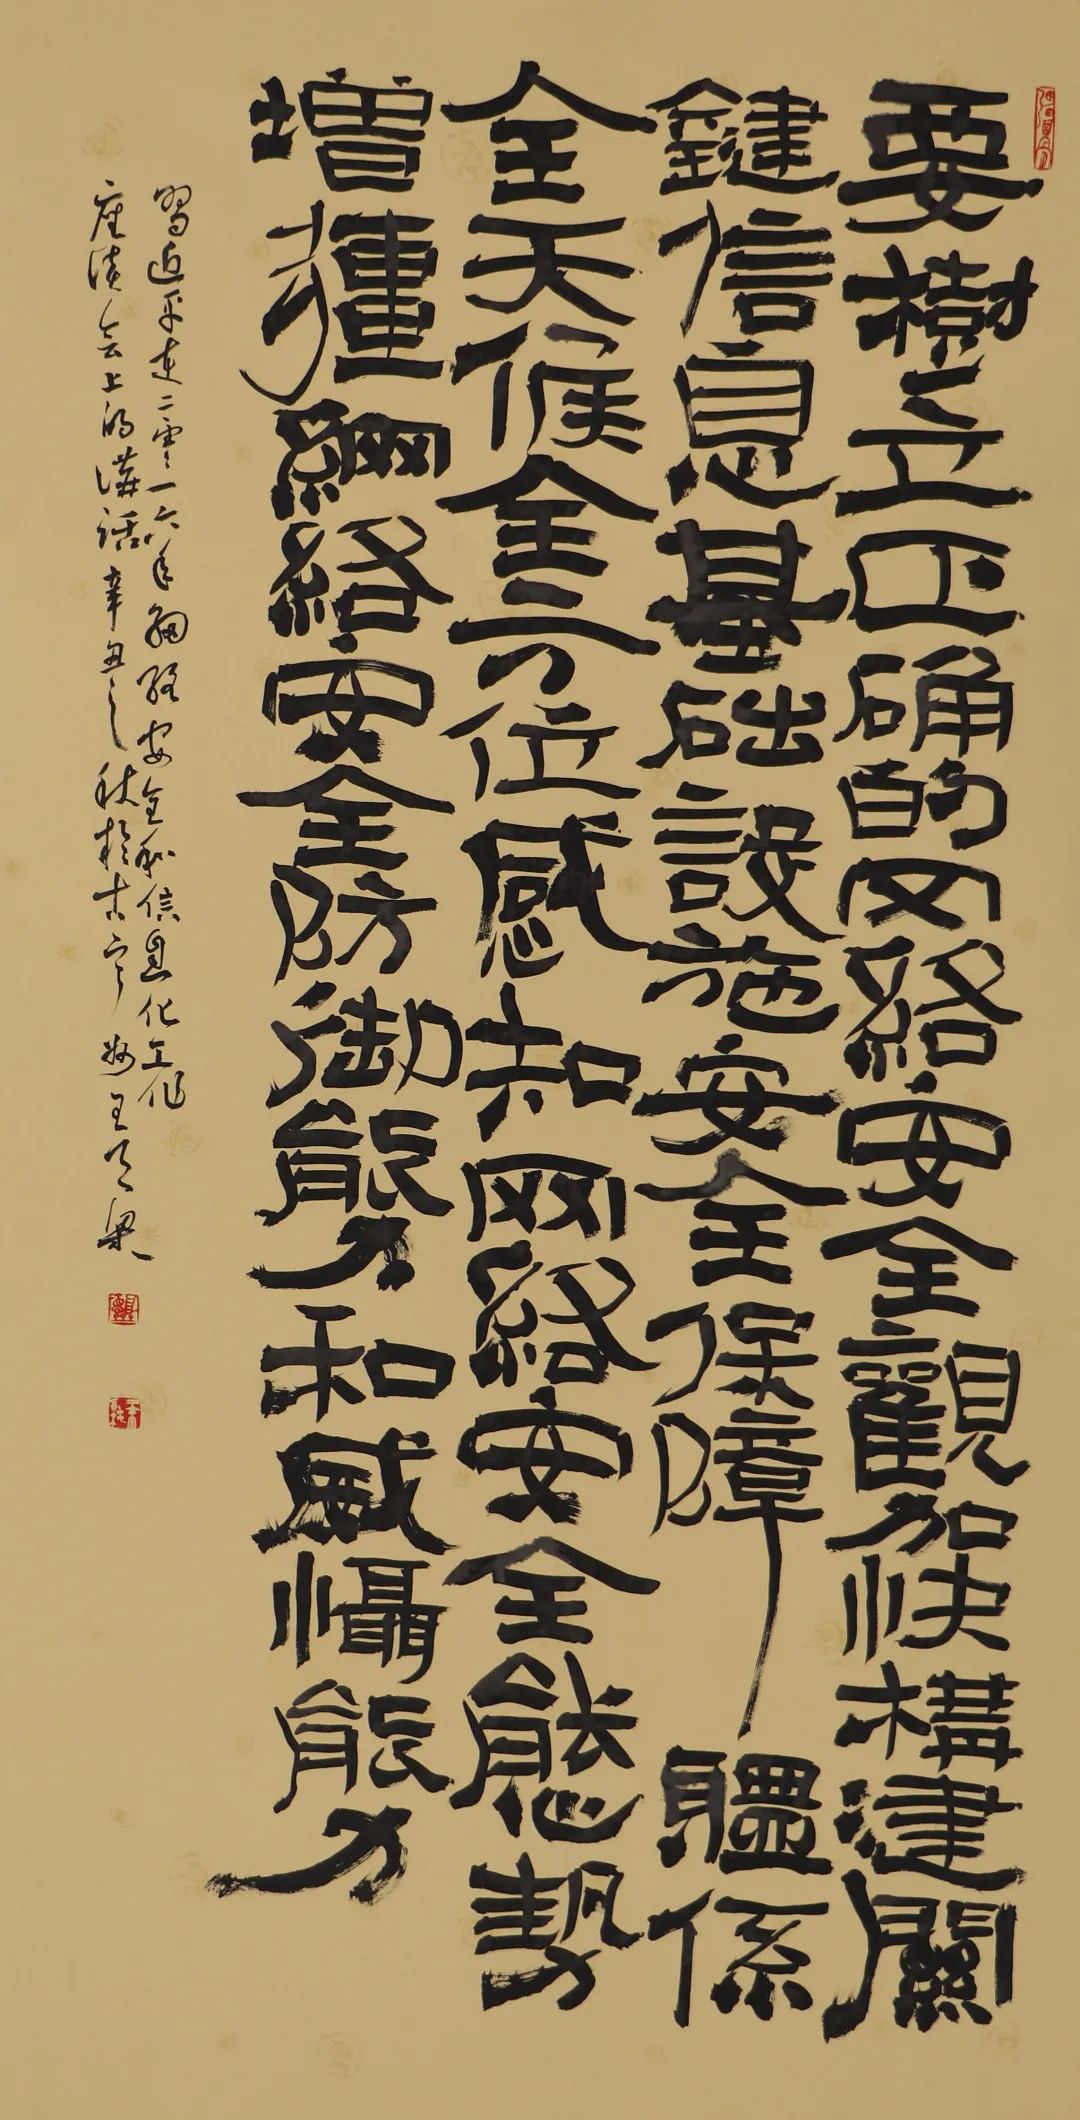 要樹立正确的网絡安全觀加快構建關
鍵信息基础設施安全保障體係
全天候全方位感知网絡安全態勢
增強網絡安全防御能力和威懾能力
習近平在二零一六年網絡安全和信息化工作
座談会上的講話辛丑之秋於古寧州王